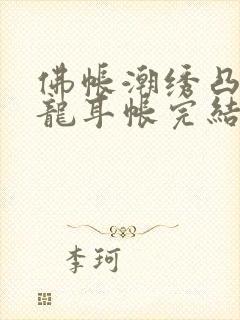 佛帐潮绣凸
龍耳帐完結
李珂